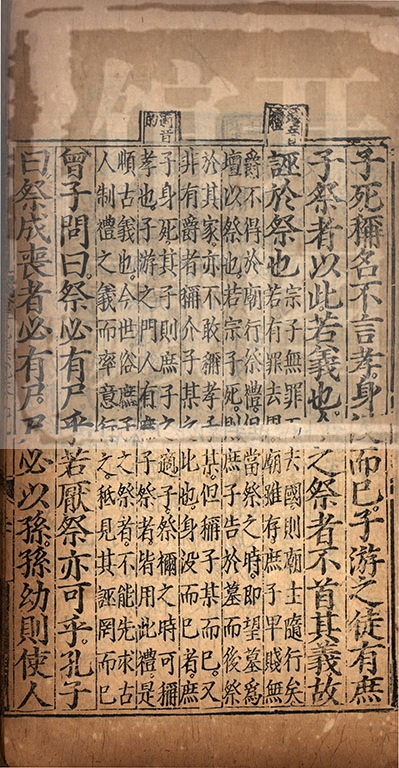 子死稱名不言孝身沒而已。子游之徒有庶
子祭者以此若義也今之祭者不首其義故
誣於祭也
宗子無罪而去國則廟主隨行矣
若有罪去國廟雖存庶子卑賤無
爵不得於廟行祭禮但當祭之時即望墓爲
壇以祭也若宗子死則庶子告於墓而後祭
於其家亦不敢稱孝子某但稱子某而已又
非有爵者稱介子某之比也身没而已者庶
子身死其子則庶子之適子祭禰之時可稱
孝也子游之門人有庶子祭者皆用此禮是
順古義也今世俗庶子之祭者不能先求古
人制禮之義而率意行之秖見其誣罔而已
曾子問曰。祭必有尸乎若厭祭亦可乎。孔子
曰祭成喪者必有尸。尸必以孫。孫幼則使人